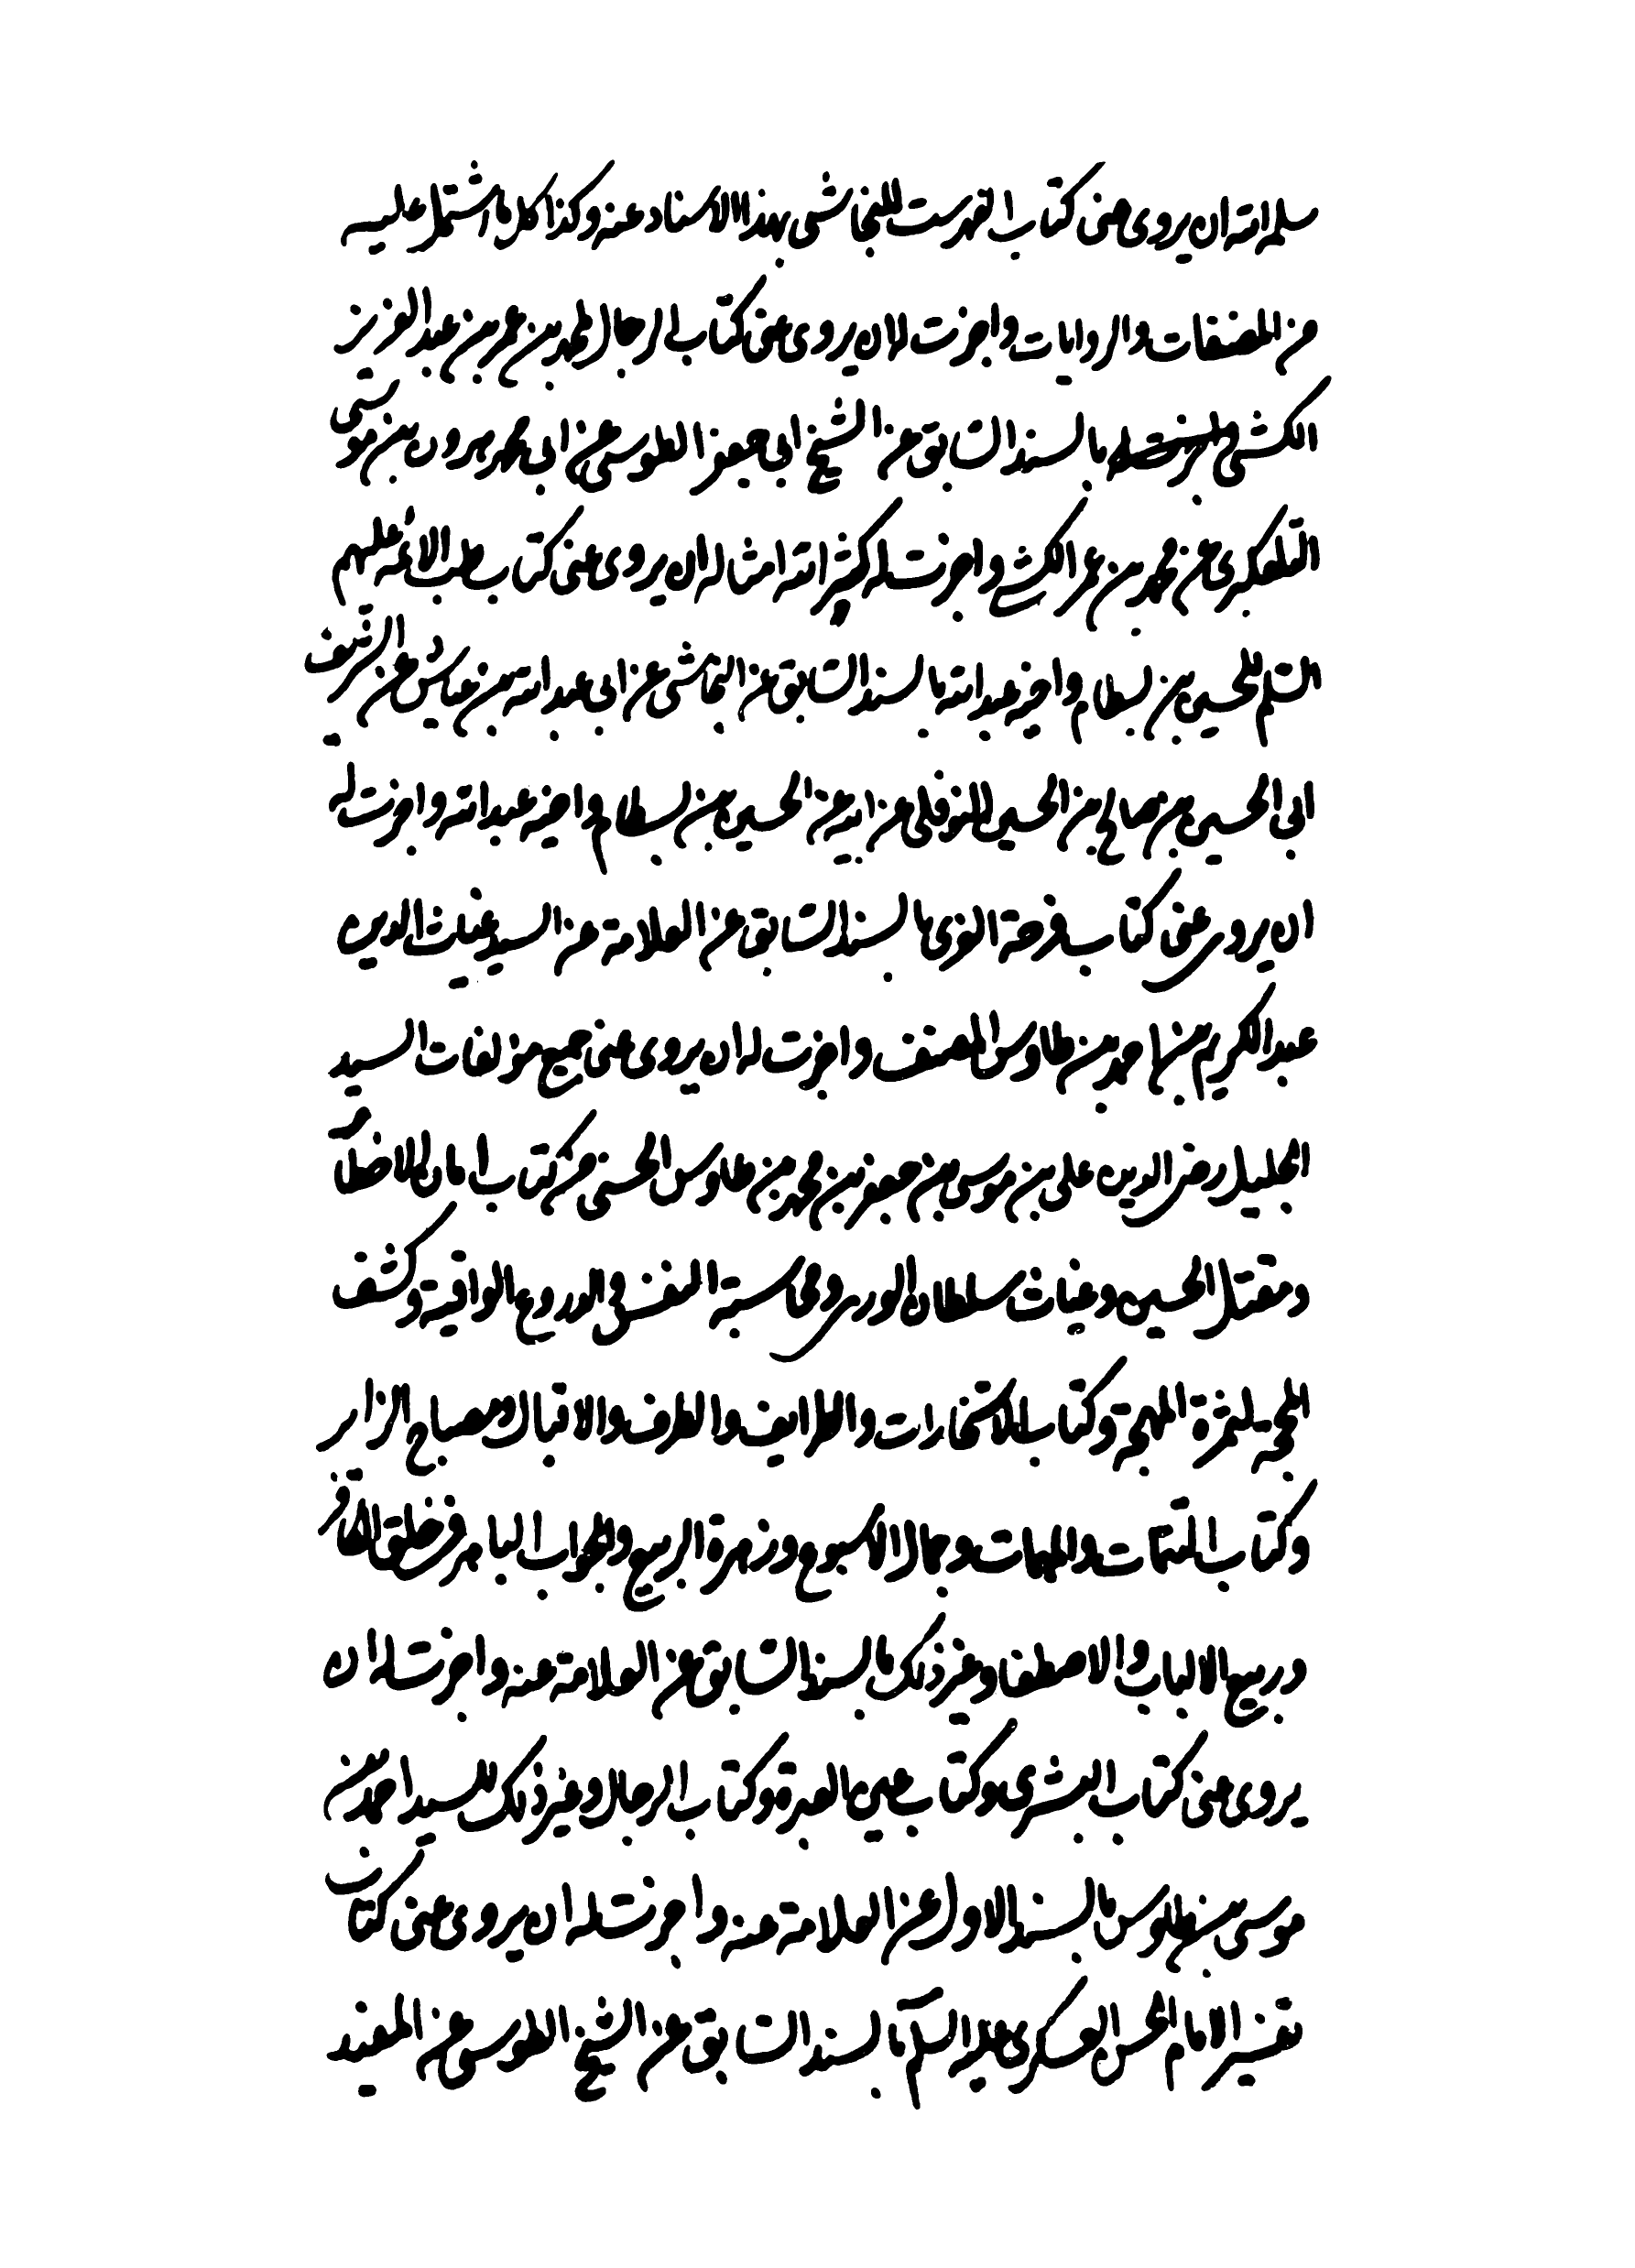 سلمه الله ان يروى عنى كتاب الفهرست للنجاشى بهذا الاسناد عنه وكذا كل ما اشتمل عليه
من المصنفات والروايات واجزت له ان يروى عنى كتاب الرجال لمحمد بن عمر بن عبد العزيز
الكشى بالسند السابق عن الشيخ ابى جعفر الطوسى عن ابى محمد هرون بن موسى
التلعكبرى عن محمد بن عمر الكشى واجزت له كثر الله امثاله ان يروى عنى كتاب طب الائمة عليهم
السلم للحسين بن بسطام واخيه عبد الله بالسند السابق عن النجاشى عن ابى عبد الله بن عياش عن الشريف
ابى الحسين بن صالح بن الحسين النوفلى عن ابيه عن الحسين بن بسطام واخيه عبد الله واجزت له
ان يروى عنى كتاب فرحة الغرى بالسند السابق عن العلامة عن السيد غياث الدين
عبد الكريم بن احمد بن طاوس المصنف واجزت له ان يروى عنى جميع مؤلفات السيد
الجليل رضى الدين على بن موسى بن جعفر بن محمد بن طاوس الحسنى من كتاب امان الاخطار
ومقتل الحسين وغياث سلطان الورى ومحاسبة النفس والدروع الواقية وكشف
المحجة لثمرة المهجة وكتاب الاستخارات والطرايف والطرف والاقبال ومصباح الزاير
وكتاب التتمات والمهمات وجمال الاسبوع وزهرة الربيع والجواب الباهر فى خلق الكافر
وربيع الالباب والاصطفا وغير ذلك بالسند السابق عن العلامة عنه واجزت له ان
يروى عنى كتاب البشرى وكتاب عين العبرة وكتاب الرجال وغير ذلك للسيد احمد بن
موسى بن طاوس بالسند الاول عن العلامة عنه واجزت له ان يروى عنى كتاب
تفسير الامام الحسن العسكرى عليه السلم بالسند السابق عن الشيخ الطوسى عن المفيد